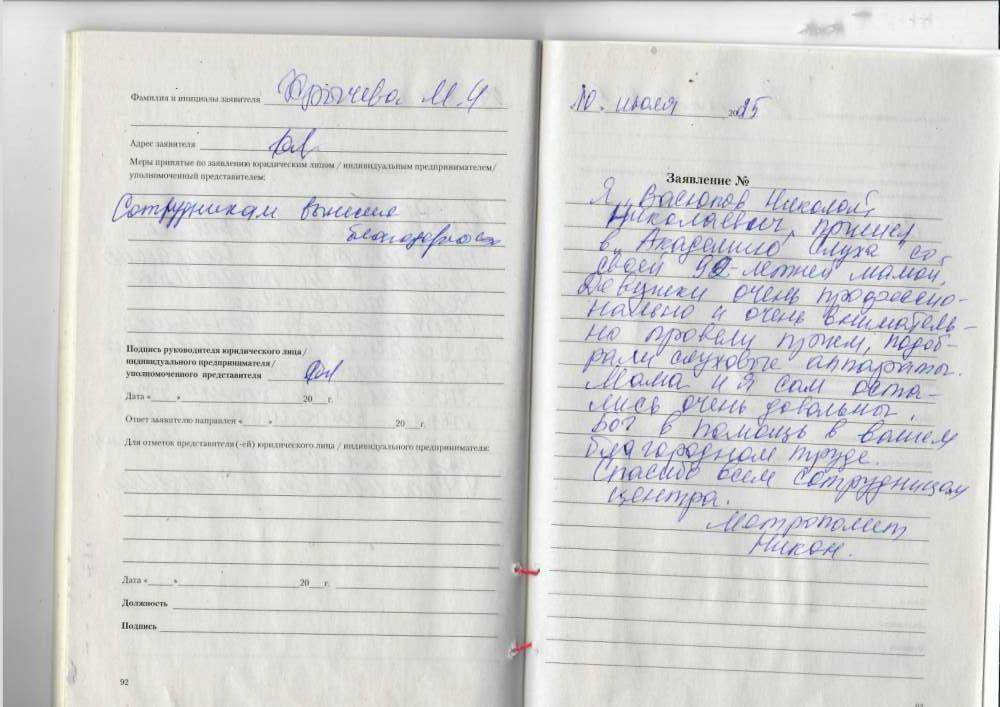 Фамилия и инициалы заявителя
Адрес заявителя
Меры принятые по заявлению юридическим лицом / индивидуальным предпринимателем/
уполномоченный представителем:
Сотрудникам
благодарность
Подпись руководителя юридического лица /
индивидуального предпринимателя /
уполномоченного представителя
Дата «____»____20__г.
Ответ заявителю направлен «____»____20__г.
Для отметок представителя (-ей) юридического лица / индивидуального предпринимателя:
Дата «____»____20__г.
Должность
Подпись
92
10. июля 2025
Заявление №
Я, Васюков Николай
Николаевич, пришел
в Академию Слуха со
своей 92-летней мамой.
Девушки очень професcио-
нально и очень вниматель-
но провели прием, подоб-
рали слуховые аппараты.
Мама и я сам оста-
лись очень довольны.
Бог в помощь в вашем
благородном труде.
Спасибо всем сотрудницам
центра.
Митрополит
Никон.